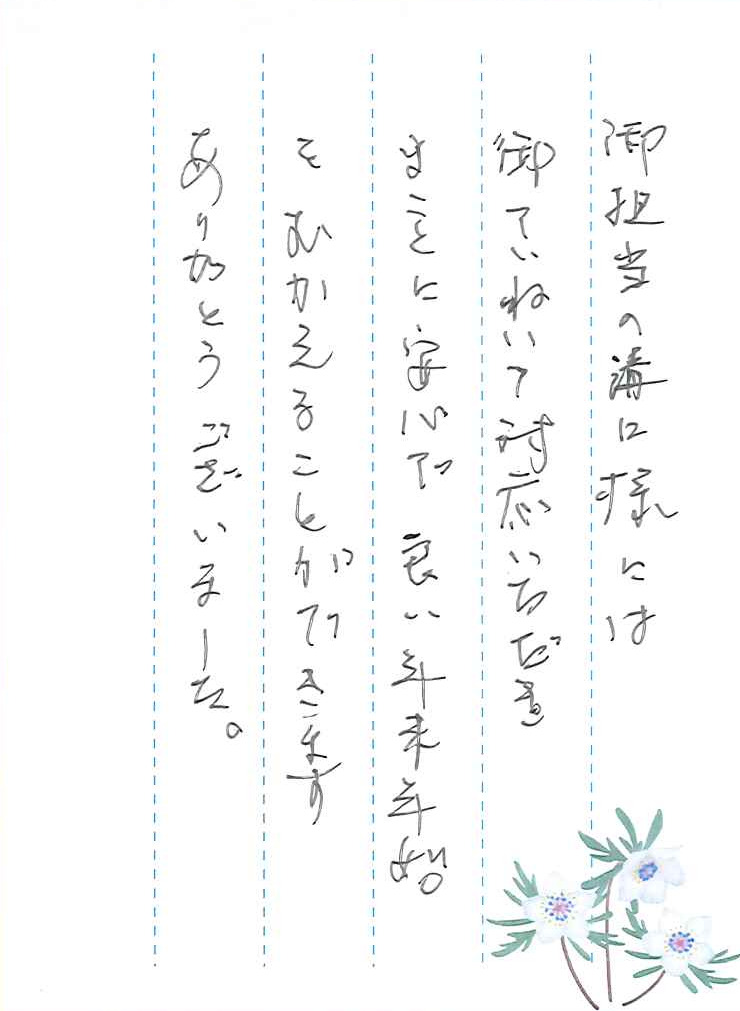 御担当の溝口様には
御ていねいて対応いただき
まことに安心で 良い年末年始
を むかえることができます
ありがとう ございました。